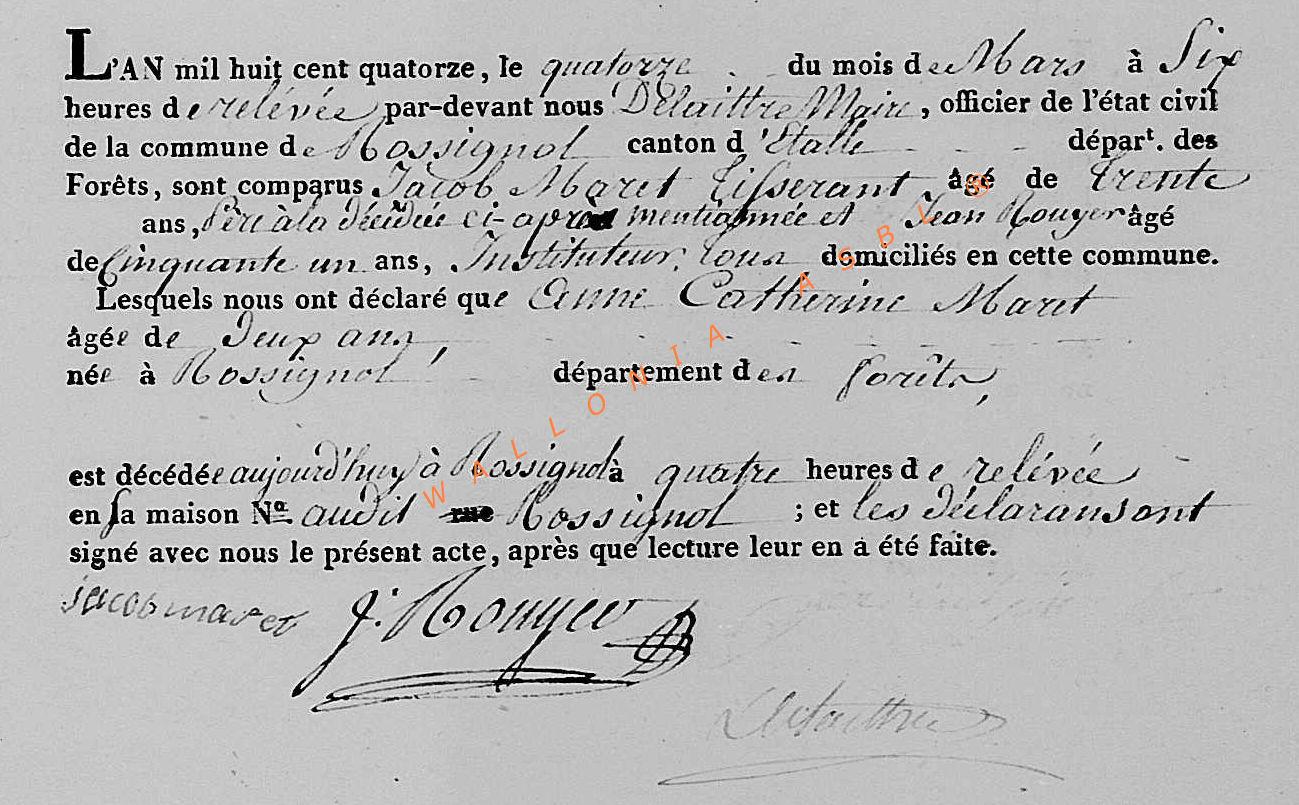 L'AN mil huit cent quatorze, le quatorze du mois de Mars à Six
heures de relévée par-devant nous Delaittre Maire, officier de l'état civil
de la commune de Rossignol canton d'Etalle départ. des
Forêts, sont comparus Jacob Maret Tisserant âgé de trente
ans, Père à la décédée ci-après mentionnée et Jean Rouyer âgé
de Cinquante un ans, Instituteur, tous domiciliés en cette commune.
Lesquels nous ont déclaré que Anne Catherine Maret
âgée de Deux ans,
née à Rossignol département des forêts,
est décédée aujourd'huy à Rossignol à quatre heures de relévée
en sa maison Nº audit rue Rossignol ; et les déclarans ont
signé avec nous le présent acte, après que lecture leur en a été faite.
jacob maret J. Rouyer
Delaittre
WALLONIA ASBL